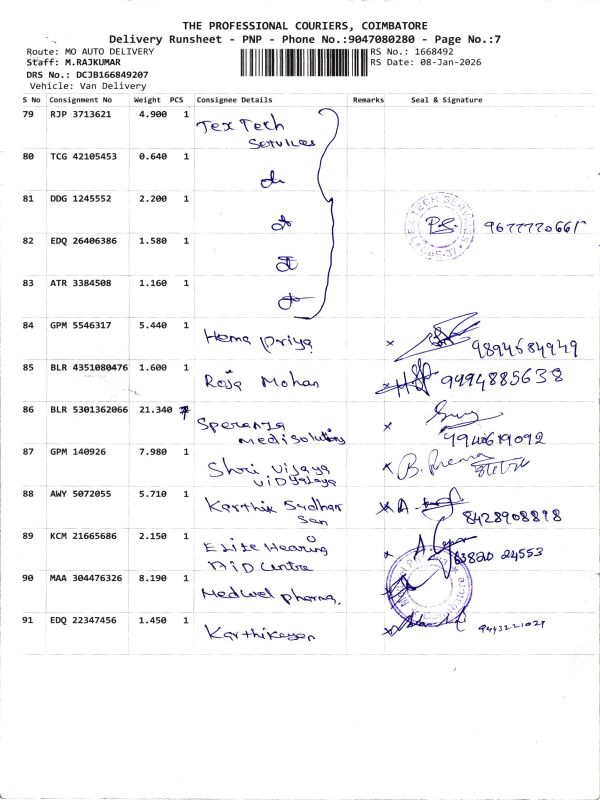 THE PROFESSIONAL COURIERS, COIMBATORE
Delivery Runsheet - PNP - Phone No.:9047080280 - Page No.:7
Route: MO AUTO DELIVERY
RS No.: 1668492
Staff: M.RAJKUMAR
RS Date: 08-Jan-2026
DRS No.: DCJB166849207
Vehicle: Van Delivery
S No Consignment No Weight PCS Consignee Details Remarks Seal & Signature
79 RJP 3713621 4.900 1 Tex Tech
Services
80 TCG 42105453 0.640 1
81 DDG 1245552 2.200 1
P.S. 9677770661
82 EDQ 26406386 1.580 1
83 ATR 3384508 1.160 1
84 GPM 5546317 5.440 1 Hema Priya x 9894684949
85 BLR 4351080476 1.600 1 Roja Mohan x 9994885638
86 BLR 5301362066 21.340 Speranza
medisolutions x 9940619092
87 GPM 140926 7.980 1 Shri vijaya
viDyalaya x B. Prema
88 AWY 5072055 5.710 1 Karthik Sridhar
San x 8428908898
89 KCM 21665686 2.150 1 Elite Hearing
AiD Centre x 63820 24553
90 MAA 304476326 8.190 1 Medwel pharma.
91 EDQ 22347456 1.450 1 Karthikeyan x 9443221029